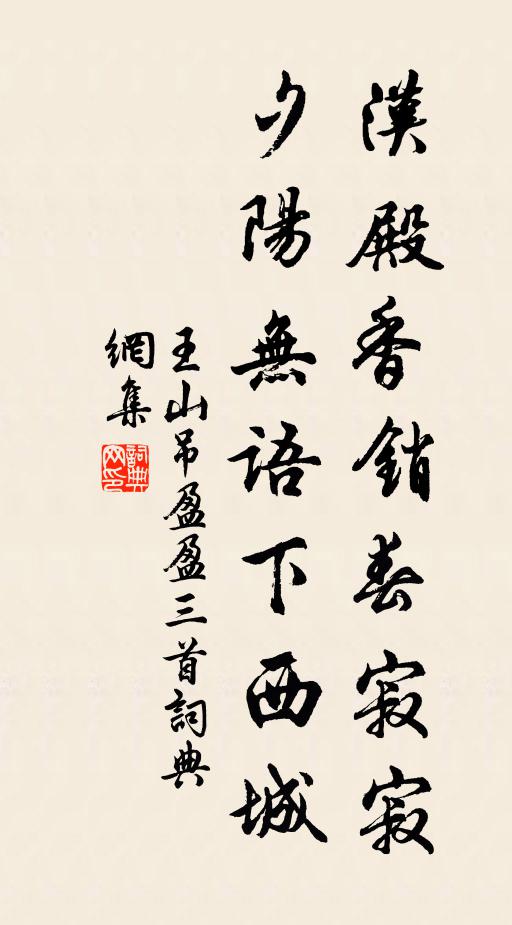 漢殿香銷春寂寂
夕陽無語下西城
王山吊盈盈三首詞典
網集
詞典網印